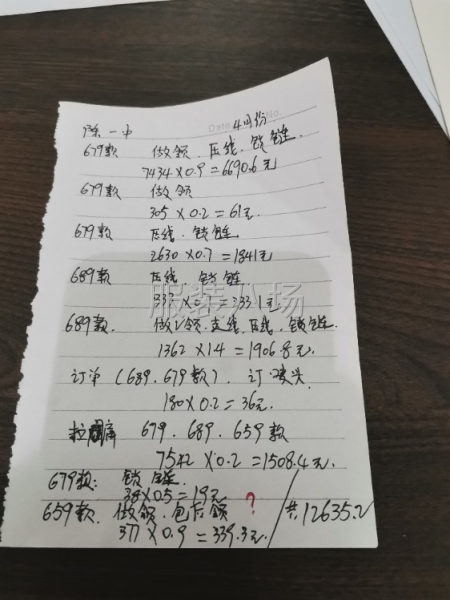 陈一中 4月份
679款 做领.压线.锁链
7434×0.9=6690.6元
679款 做领
305×0.2=61元.
679款 压线.锁链
2630×0.7=1841元
689款 压线.锁链
689款. 做领.压线.锁链.
1362×1.4=1906.8元.
(689.679款).订唛头
180×0.2=36元.
679.689.659款
7542×0.2=1508.4元.
679款: 锁链
38×0.5=19元
659款. 做领.包后领 ?
377×0.9=339.3元.
共12635.2
服装小场